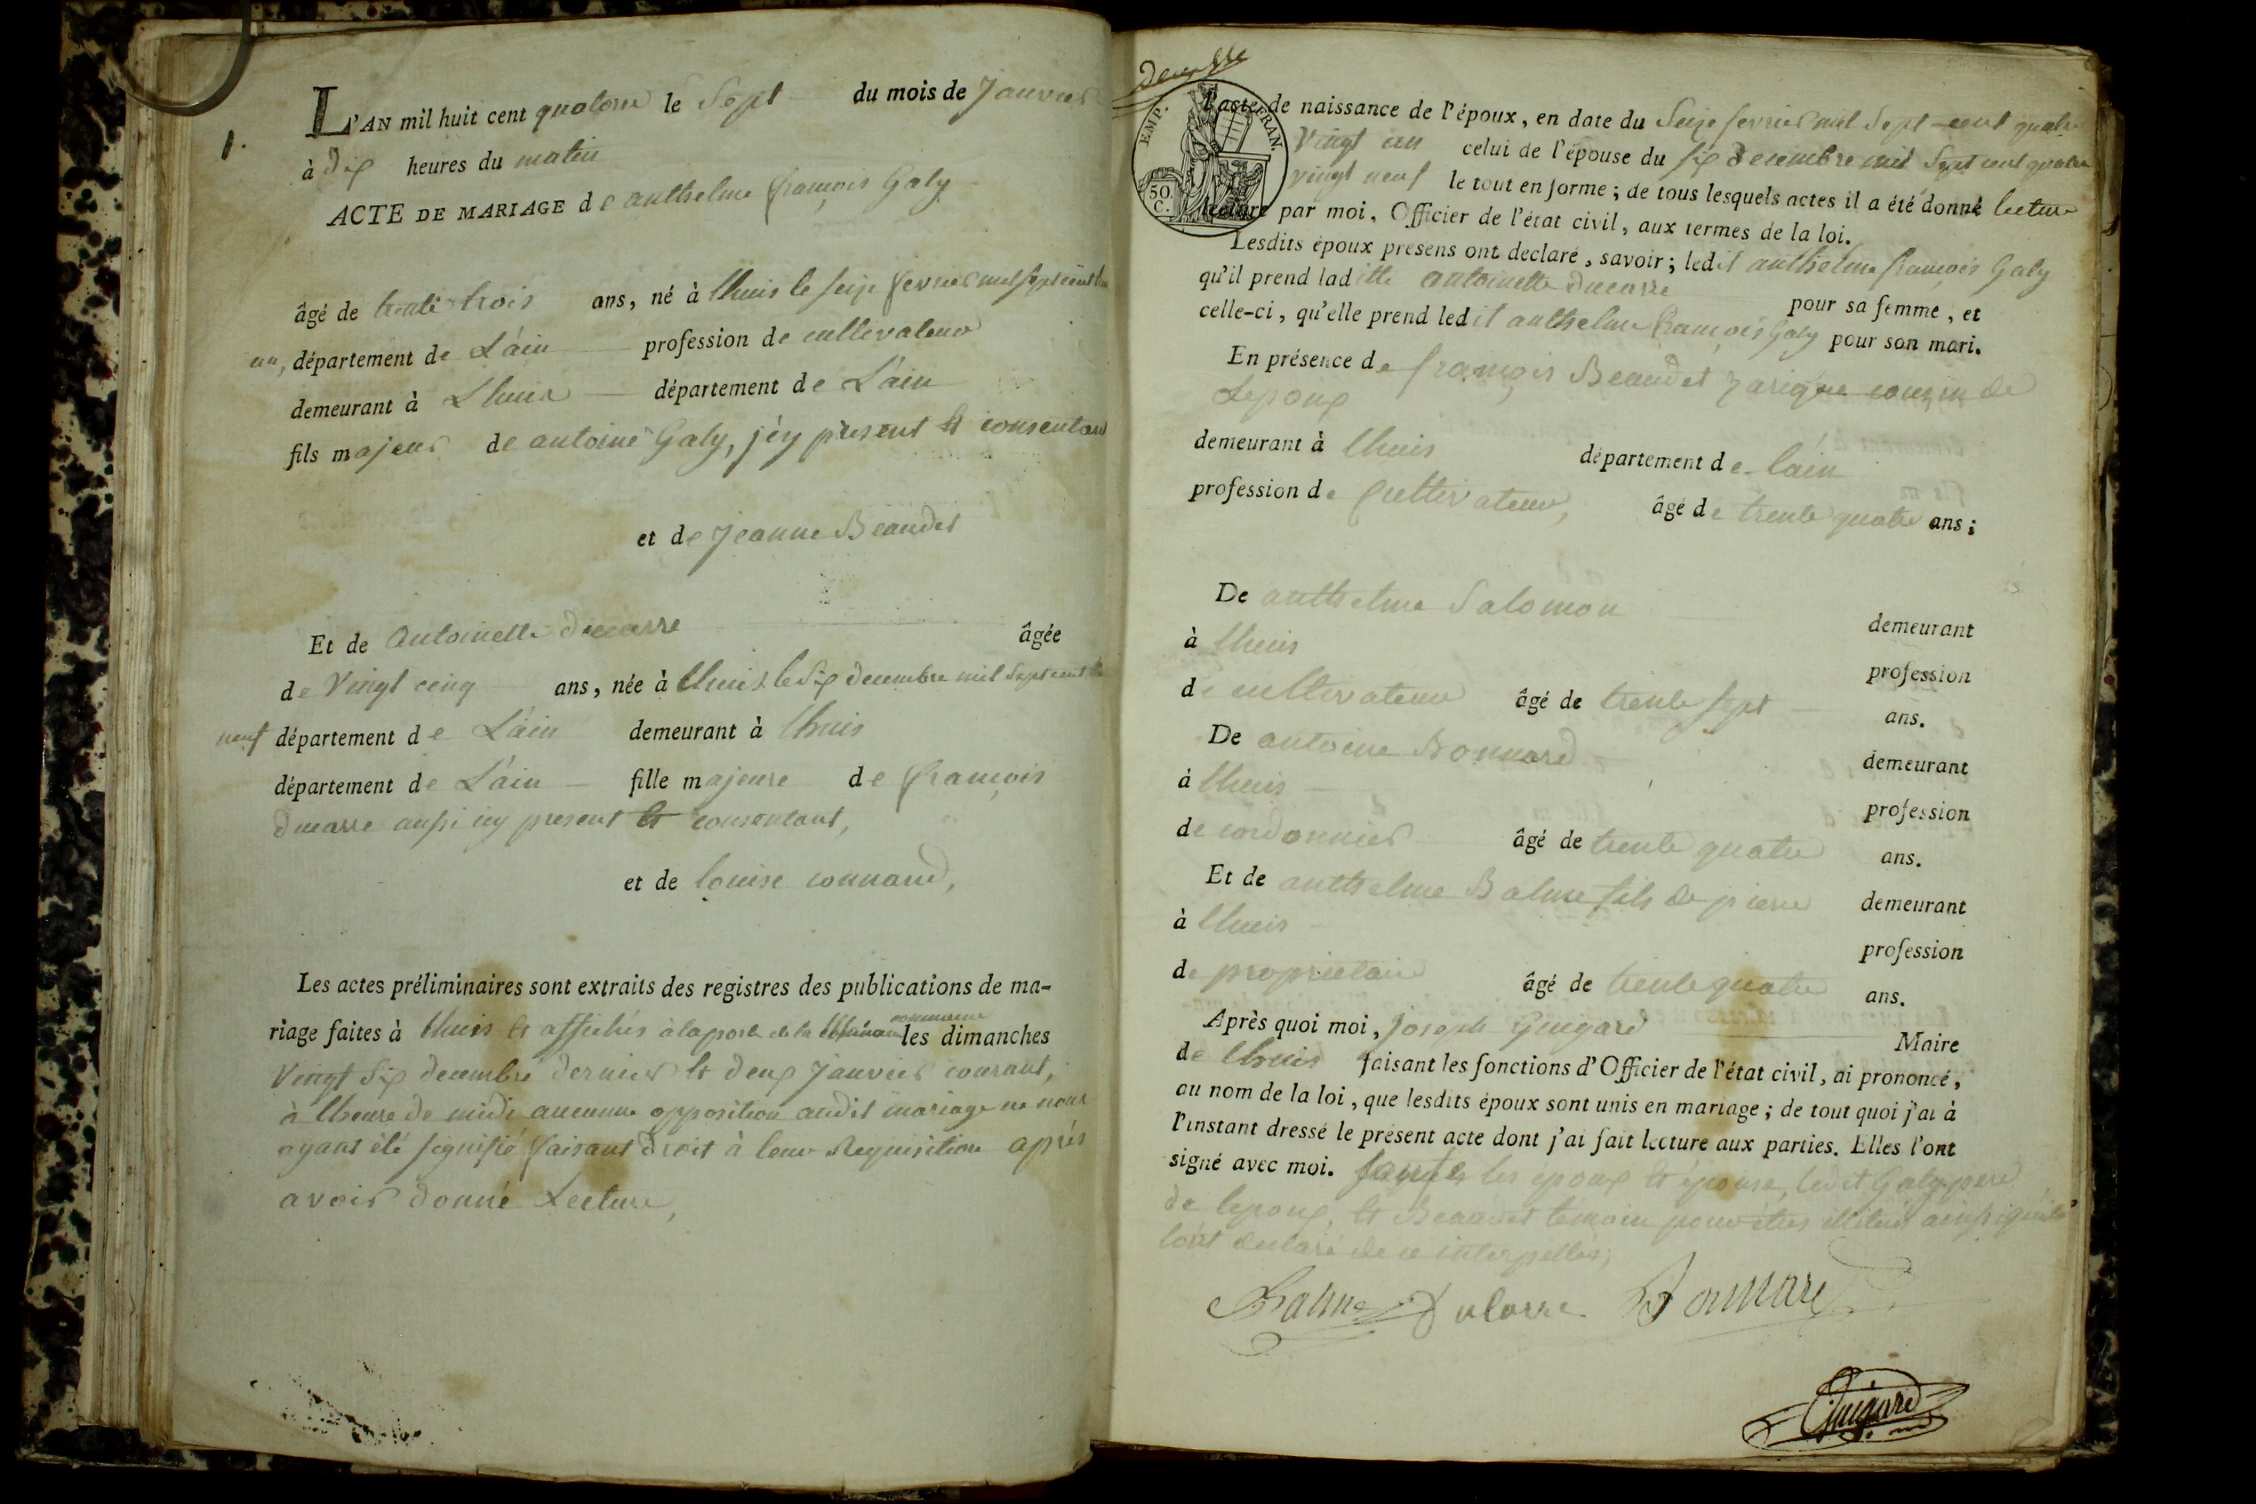 1.
L'AN mil huit cent quatorze le Sept du mois de Janvier
à dix heures du matin
ACTE DE MARIAGE de anthelme françois Galy
âgé de trente trois ans, né à lhuis le seize fevrier mil sept cent
un, département de L'ain profession de cultivateur
demeurant à Lhuis département de L'ain
fils majeur de antoine Galy, j'cy present et consentant
et de Jeanne Beaudet
Et de Antoinette ducarre âgée
de Vingt cinq ans, née à lhuis le Six decembre mil sept cent
neuf département de L'ain demeurant à lhuis
département de L'ain fille majeure de françois
ducarre aussi icy present et consentant,
et de louise connard,
Les actes préliminaires sont extraits des registres des publications de ma-
riage faites à lhuis et affichés à la porte de la commune les dimanches
Vingt Six decembre dernier et deux Janvier courant,
à lheure de midi aucunne opposition audit mariage ne nous
ayant été signifié faisant droit à leur Requisition après
avoir donné Lecture,
deuxième
EMP. FRAN.
50 C.
l'acte de naissance de l'époux, en date du Seize fevrier mil Sept cent quatre
Vingt un celui de l'épouse du six decembre mil Sept cent quatre
vingt neuf le tout en forme ; de tous lesquels actes il a été donné lecture
lecture par moi, Officier de l'état civil, aux termes de la loi.
Lesdits époux présens ont déclaré, savoir ; ledit anthelme françois Galy
qu'il prend laditte antoinette ducarre pour sa femme, et
celle-ci, qu'elle prend ledit anthelme françois Galy pour son mari.
En présence de françois Beaudet cousin de
Lepoux
demeurant à lhuis département de l'ain
profession de Cultivateur, âgé de trente quatre ans ;
De anthelme Salomon demeurant
à lhuis profession
de cultivateur âgé de trente sept ans.
De antoine Bonnard demeurant
à lhuis profession
de cordonnier âgé de trente quatre ans.
Et de anthelme Balme fils de pierre demeurant
à lhuis profession
de proprietaire âgé de trente quatre ans.
Après quoi moi, Joseph Guigard Maire
de lhuis faisant les fonctions d'Officier de l'état civil, ai prononcé,
au nom de la loi, que lesdits époux sont unis en mariage ; de tout quoi j'ai à
l'instant dressé le présent acte dont j'ai fait lecture aux parties. Elles l'ont
signé avec moi. les époux et épouse, ledit Galy pere
de lepoux, et Beaudet témoin pour être illitéré ainsi qu'ils
l'ont declaré de ce interpellés,
Balme Bonnard
Guigard